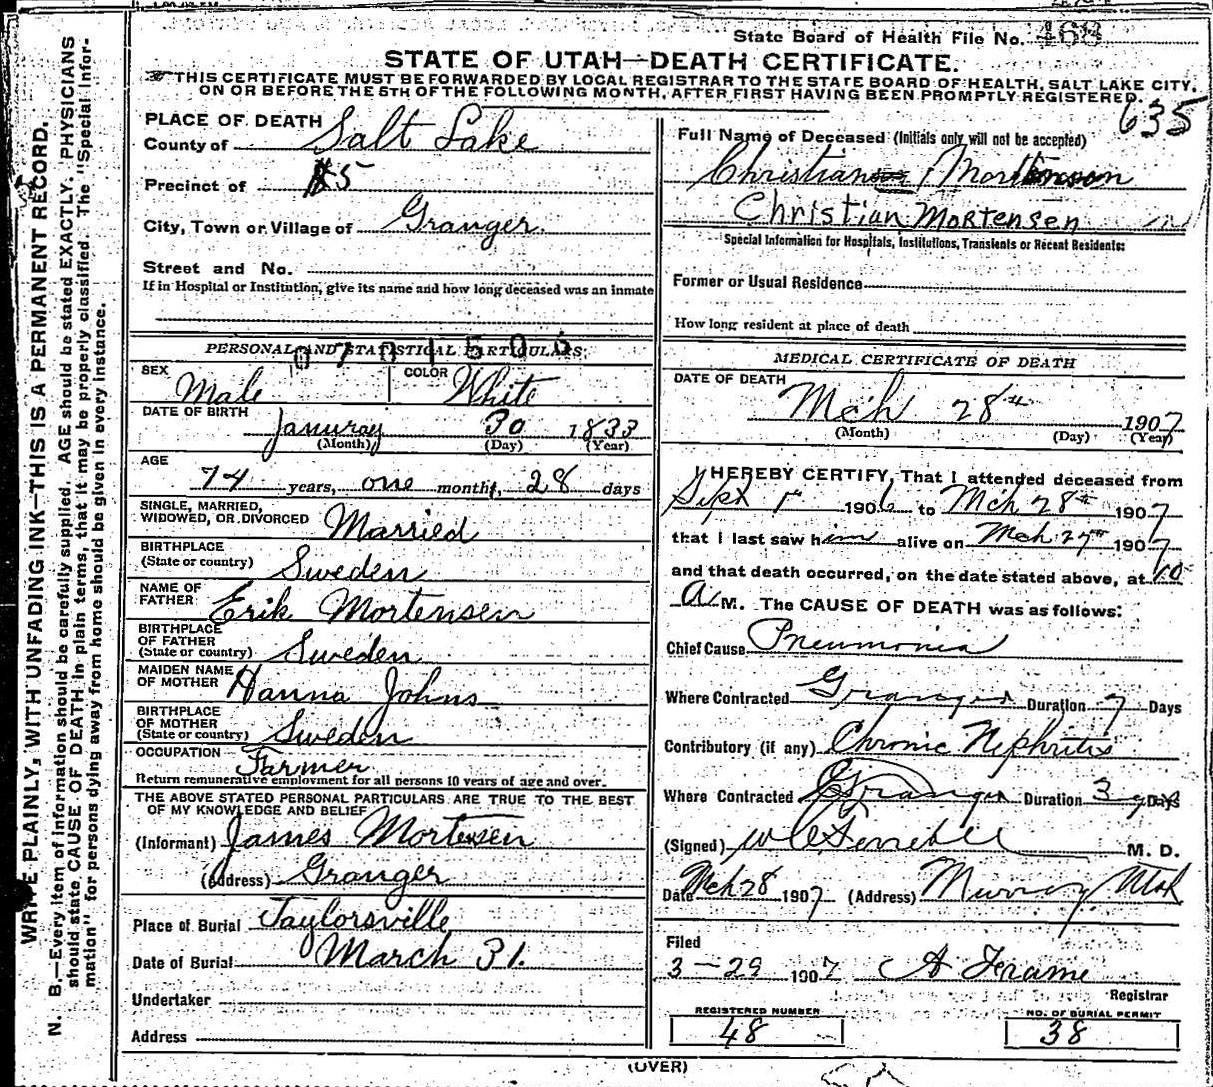 State Board of Health File No. 468
STATE OF UTAH—DEATH CERTIFICATE.
THIS CERTIFICATE MUST BE FORWARDED BY LOCAL REGISTRAR TO THE STATE BOARD OF HEALTH, SALT LAKE CITY,
ON OR BEFORE THE 5TH OF THE FOLLOWING MONTH, AFTER FIRST HAVING BEEN PROMPTLY REGISTERED.
635
WRITE PLAINLY, WITH UNFADING INK—THIS IS A PERMANENT RECORD.
N. B.—Every item of information should be carefully supplied. AGE should be stated EXACTLY. PHYSICIANS
should state CAUSE OF DEATH in plain terms, that it may be properly classified. The "Special Infor-
mation" for persons dying away from home should be given in every instance.
PLACE OF DEATH
County of Salt Lake
Precinct of 5
City, Town or Village of Granger.
Street and No.
If in Hospital or Institution, give its name and how long deceased was an inmate
PERSONAL AND STATISTICAL PARTICULARS.
SEX Male COLOR White
DATE OF BIRTH Januray 30 1833
(Month) (Day) (Year)
AGE
74 years, one months, 28 days
SINGLE, MARRIED,
WIDOWED, OR DIVORCED Married
BIRTHPLACE
(State or country) Sweden
NAME OF
FATHER Erik Mortensen
BIRTHPLACE
OF FATHER
(State or country) Sweden
MAIDEN NAME
OF MOTHER Hanna Johns
BIRTHPLACE
OF MOTHER
(State or country) Sweden
OCCUPATION Farmer
Return remunerative employment for all persons 10 years of age and over.
THE ABOVE STATED PERSONAL PARTICULARS ARE TRUE TO THE BEST
OF MY KNOWLEDGE AND BELIEF
(Informant) James Mortensen
(Address) Granger
Place of Burial Taylorsville
Date of Burial March 31.
Undertaker
Address
Full Name of Deceased (Initials only will not be accepted)
Christian Mortenson
Christian Mortensen
Special Information for Hospitals, Institutions, Transients or Recent Residents:
Former or Usual Residence
How long resident at place of death
MEDICAL CERTIFICATE OF DEATH
DATE OF DEATH
Mch 28th 1907
(Month) (Day) (Year)
I HEREBY CERTIFY, That I attended deceased from
Sept 1906 to Mch 28th 1907
that I last saw him alive on Mch 27th 1907
and that death occurred, on the date stated above, at 10
A M. The CAUSE OF DEATH was as follows:
Chief Cause Pneumonia
Where Contracted Granger Duration 7 Days
Contributory (if any) Chronic Nephritis
Where Contracted Granger Duration 3 Days
(Signed) M. D.
Date Mch 28 1907 (Address) Murray Utah
Filed
3-29 1907 A Frame
Registrar
REGISTERED NUMBER
48
NO. OF BURIAL PERMIT
38
(OVER)